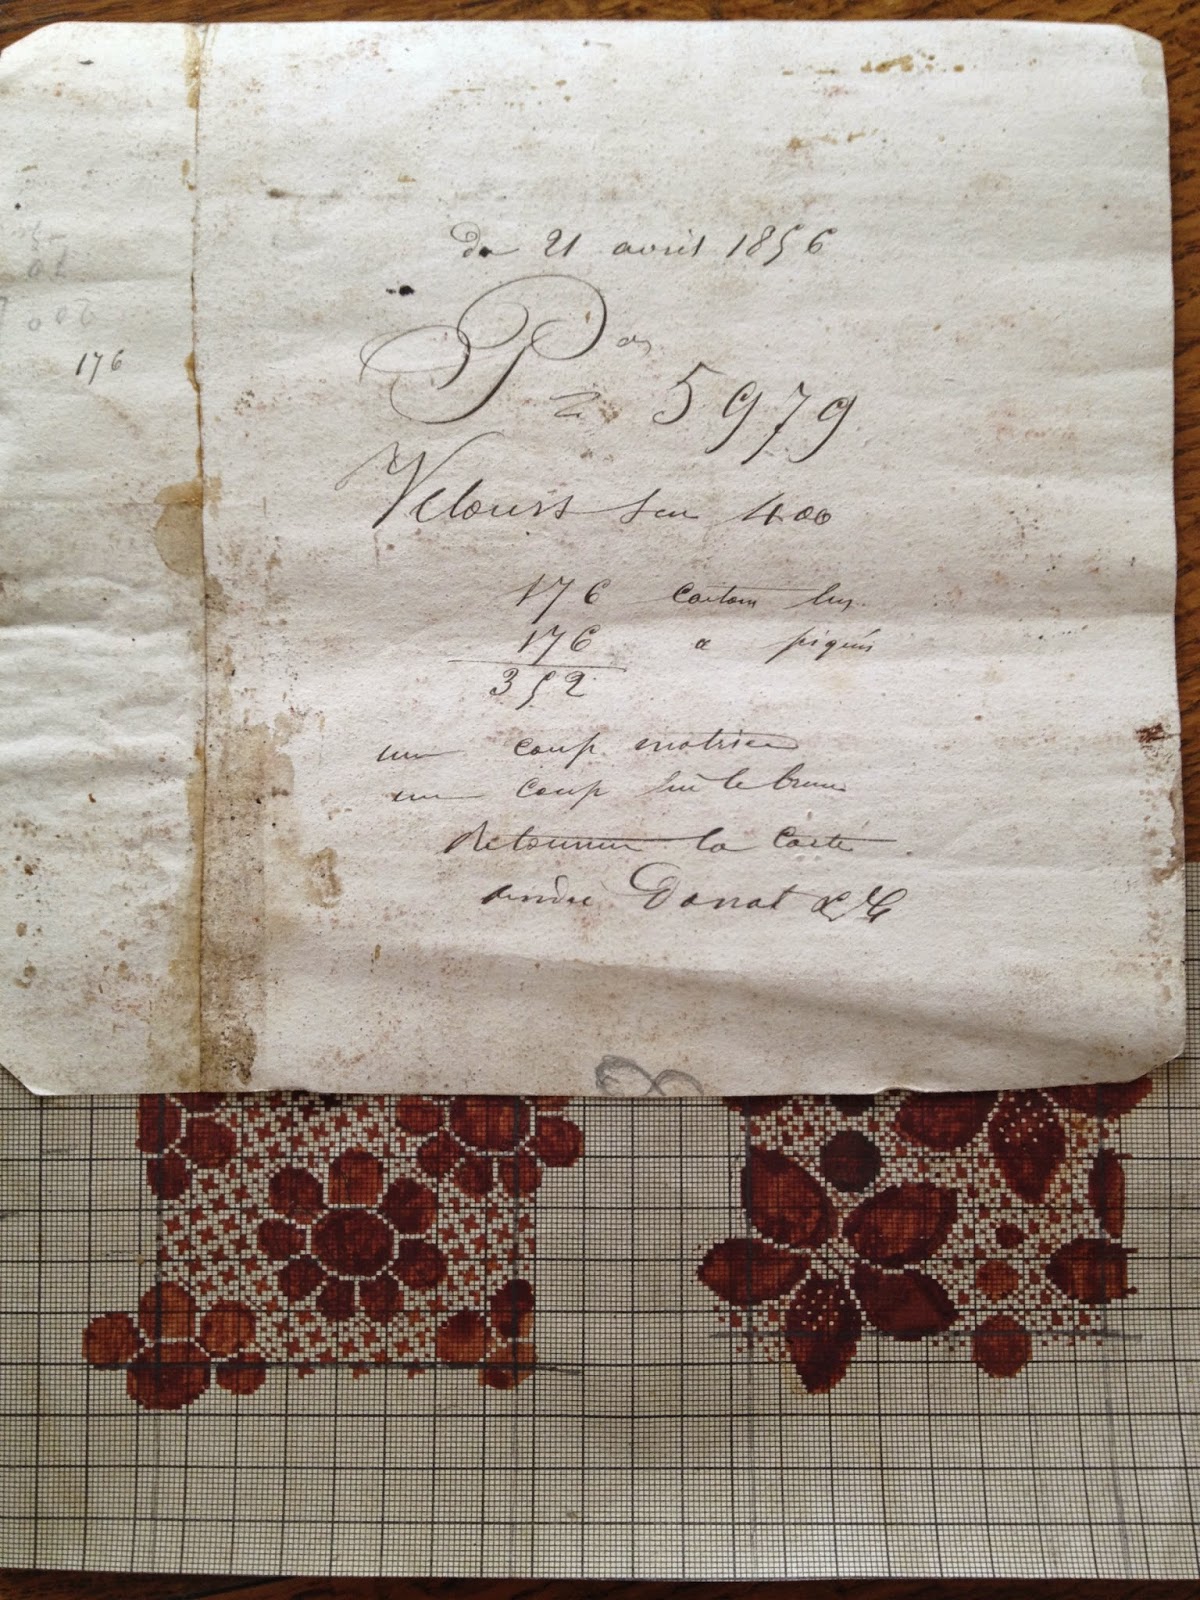 Du 21 avril 1856
Pon 5979
Velours sur 400
176 cartons lus
176 a piqués
352
un coup matrice
un coup sur le brun
Retourner la Carte
André Donat & Cie
176
200